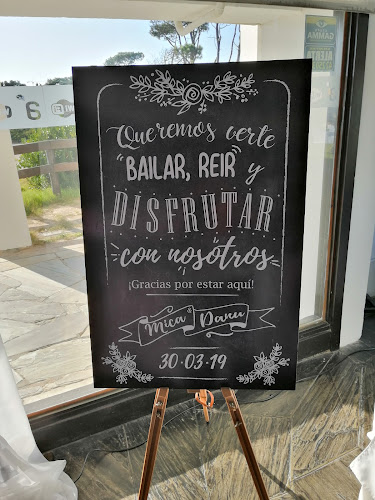 Queremos verte
"BAILAR, REIR" y
DISFRUTAR
con nosotros
¡Gracias por estar aquí!
Mica & Danu
30·03·19
GAMMA
ALERTA